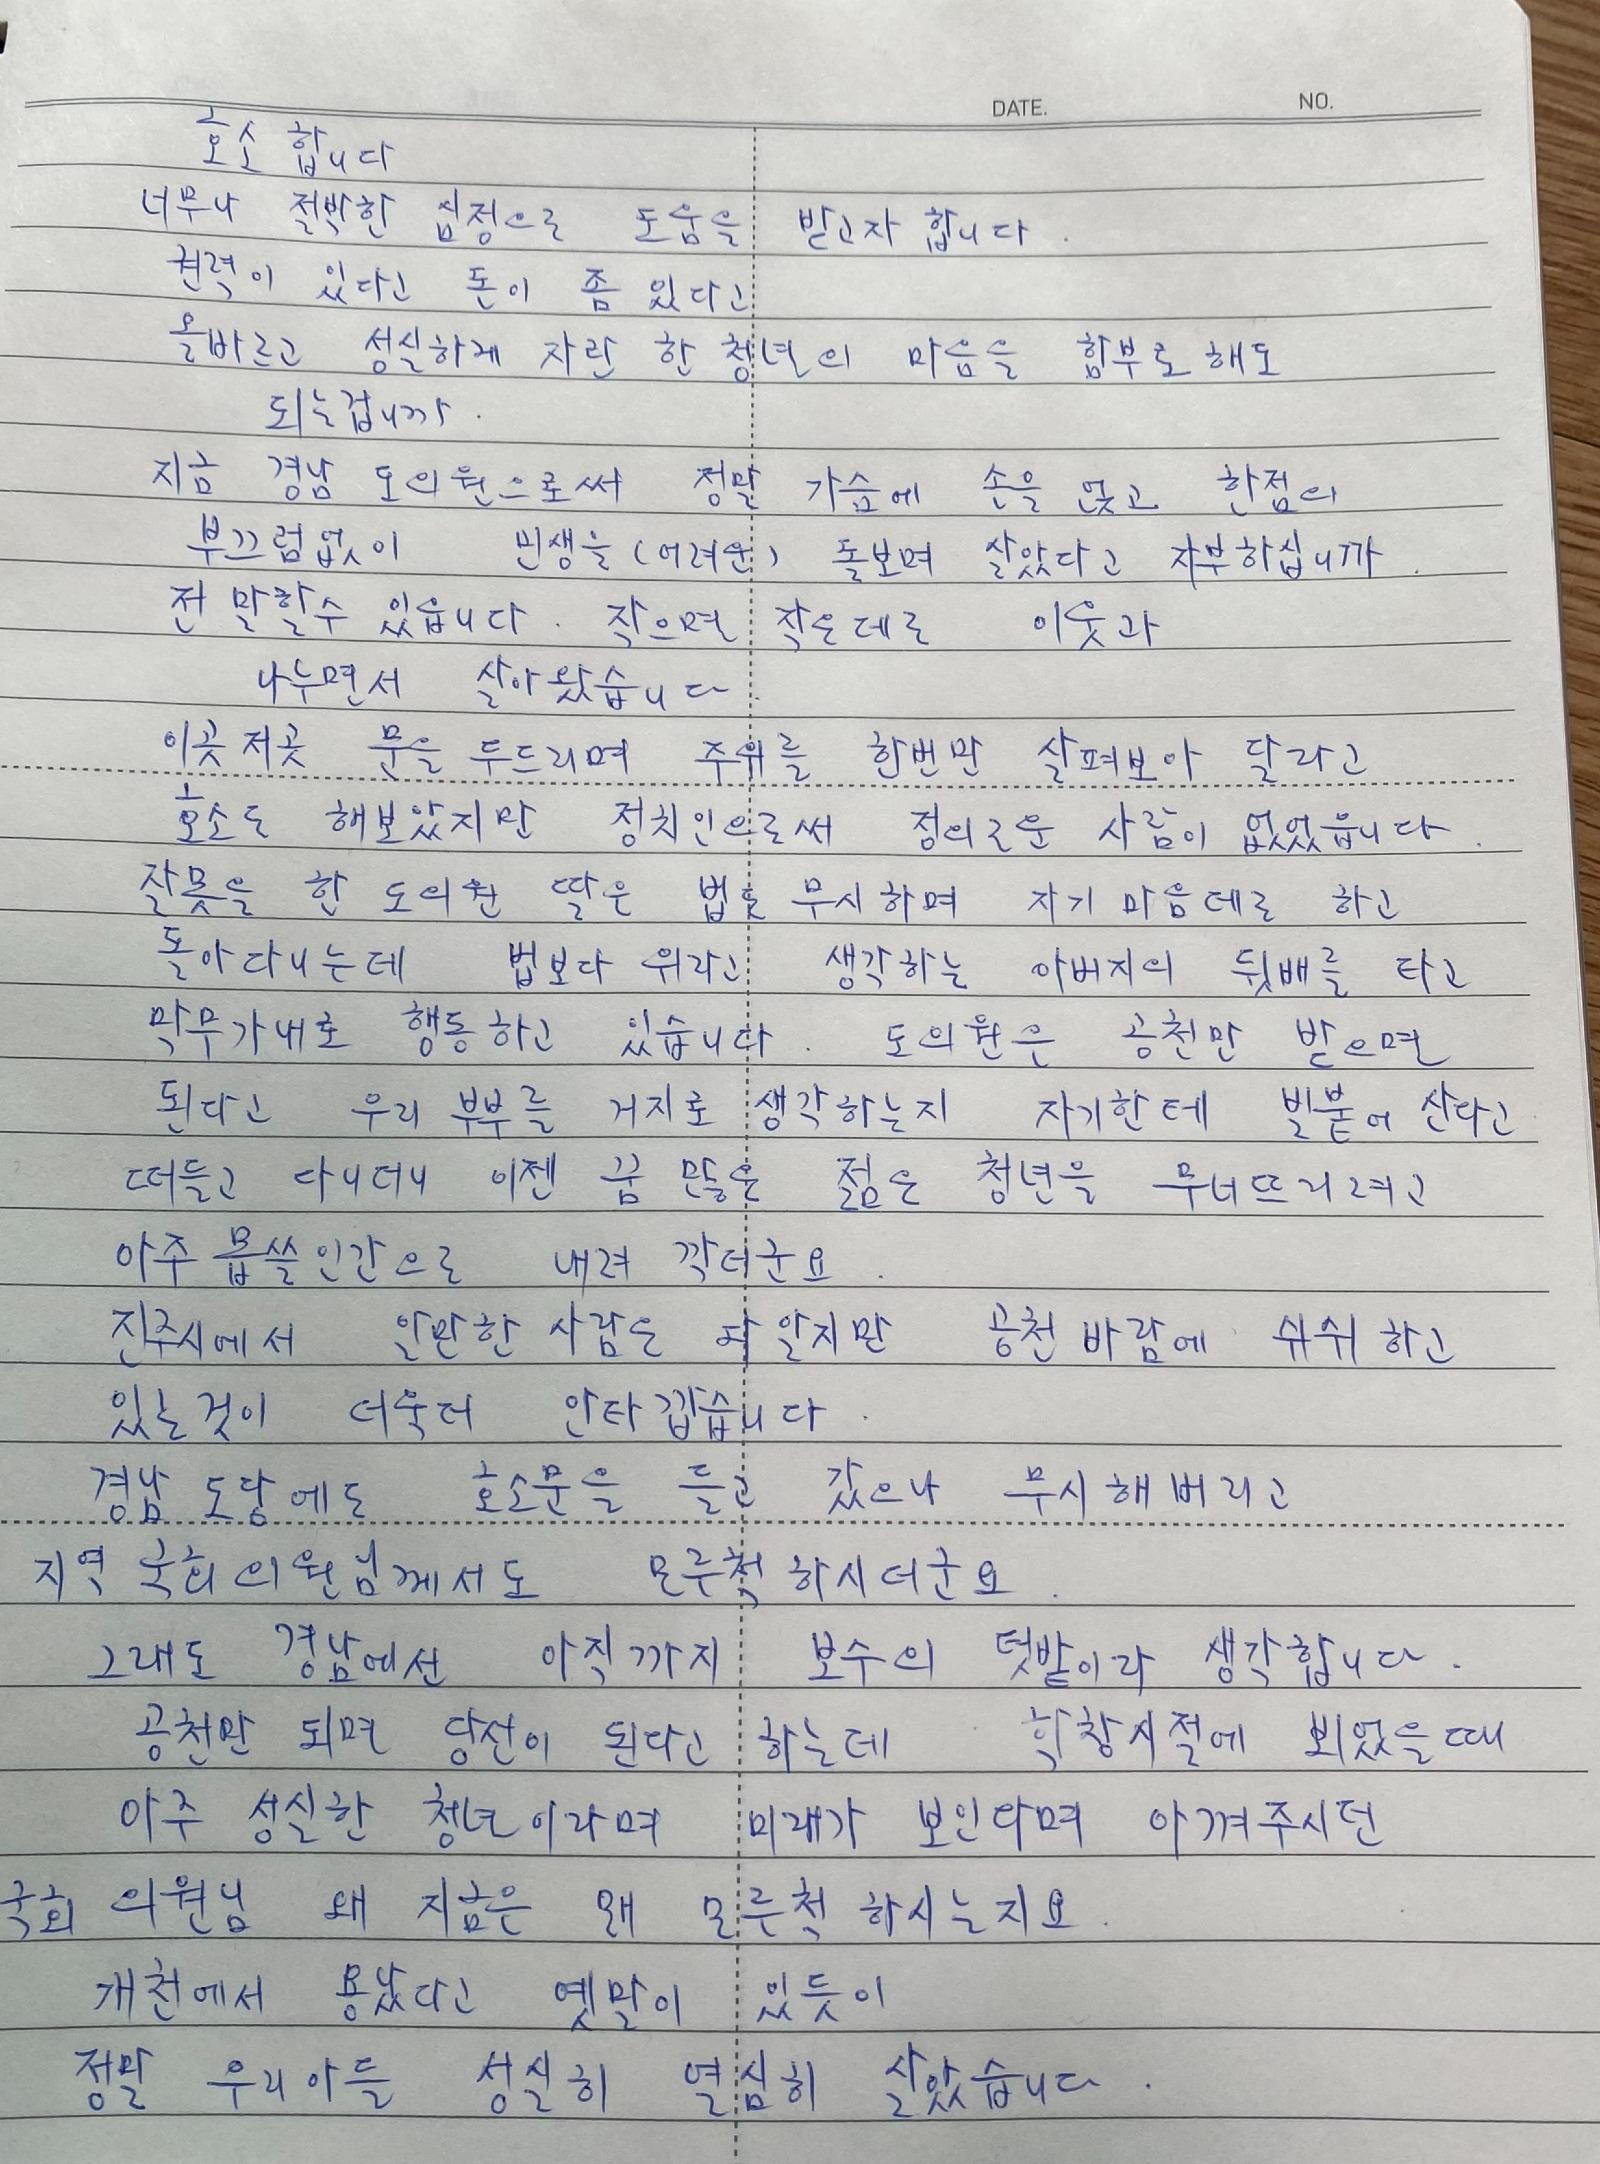 DATE. NO.
호소 합니다
너무나 절박한 심정으로 도움을 받고자 합니다.
권력이 있다고 돈이 좀 있다고
올바르고 성실하게 자란 한 청년의 마음을 함부로 해도
되는겁니까.
지금 경남 도의원으로써 정말 가슴에 손을 얹고 한점의
부끄럼없이 민생을(어려운) 돌보며 살았다고 자부하십니까.
전 말할수 있읍니다. 작으면 작은데로 이웃과
나누면서 살아왔습니다.
이곳저곳 문을 두드리며 주위를 한번만 살펴보아 달라고
호소도 해보았지만 정치인으로써 정의로운 사람이 없었읍니다.
잘못을 한 도의원 딸은 법도 무시하며 자기 마음데로 하고
돌아다니는데 법보다 위라고 생각하는 아버지의 뒷배를 타고
막무가내로 행동하고 있습니다. 도의원은 공천만 받으면
된다고 우리 부부를 거지로 생각하는지 자기한테 빌붙어 산다고
떠들고 다니더니 이젠 꿈 많은 젊은 청년을 무너뜨리려고
아주 몹쓸인간으로 내려 깍더군요.
진주시에서 알만한 사람은 다 알지만 공천바람에 쉬쉬하고
있는것이 더욱더 안타깝습니다.
경남 도당에도 호소문을 들고 갔으나 무시해버리고
지역 국회의원님께서도 모루척 하시더군요.
그래도 경남에선 아직까지 보수의 텃밭이라 생각합니다.
공천만 되면 당선이 된다고 하는데 학창시절에 뵈었을때
아주 성실한 청년이라며 미래가 보인다며 아껴주시던
국회 의원님 왜 지금은 왜 모루척 하시는지요.
개천에서 용났다고 옛말이 있듯이
정말 우리아들 성실히 열심히 살았습니다.